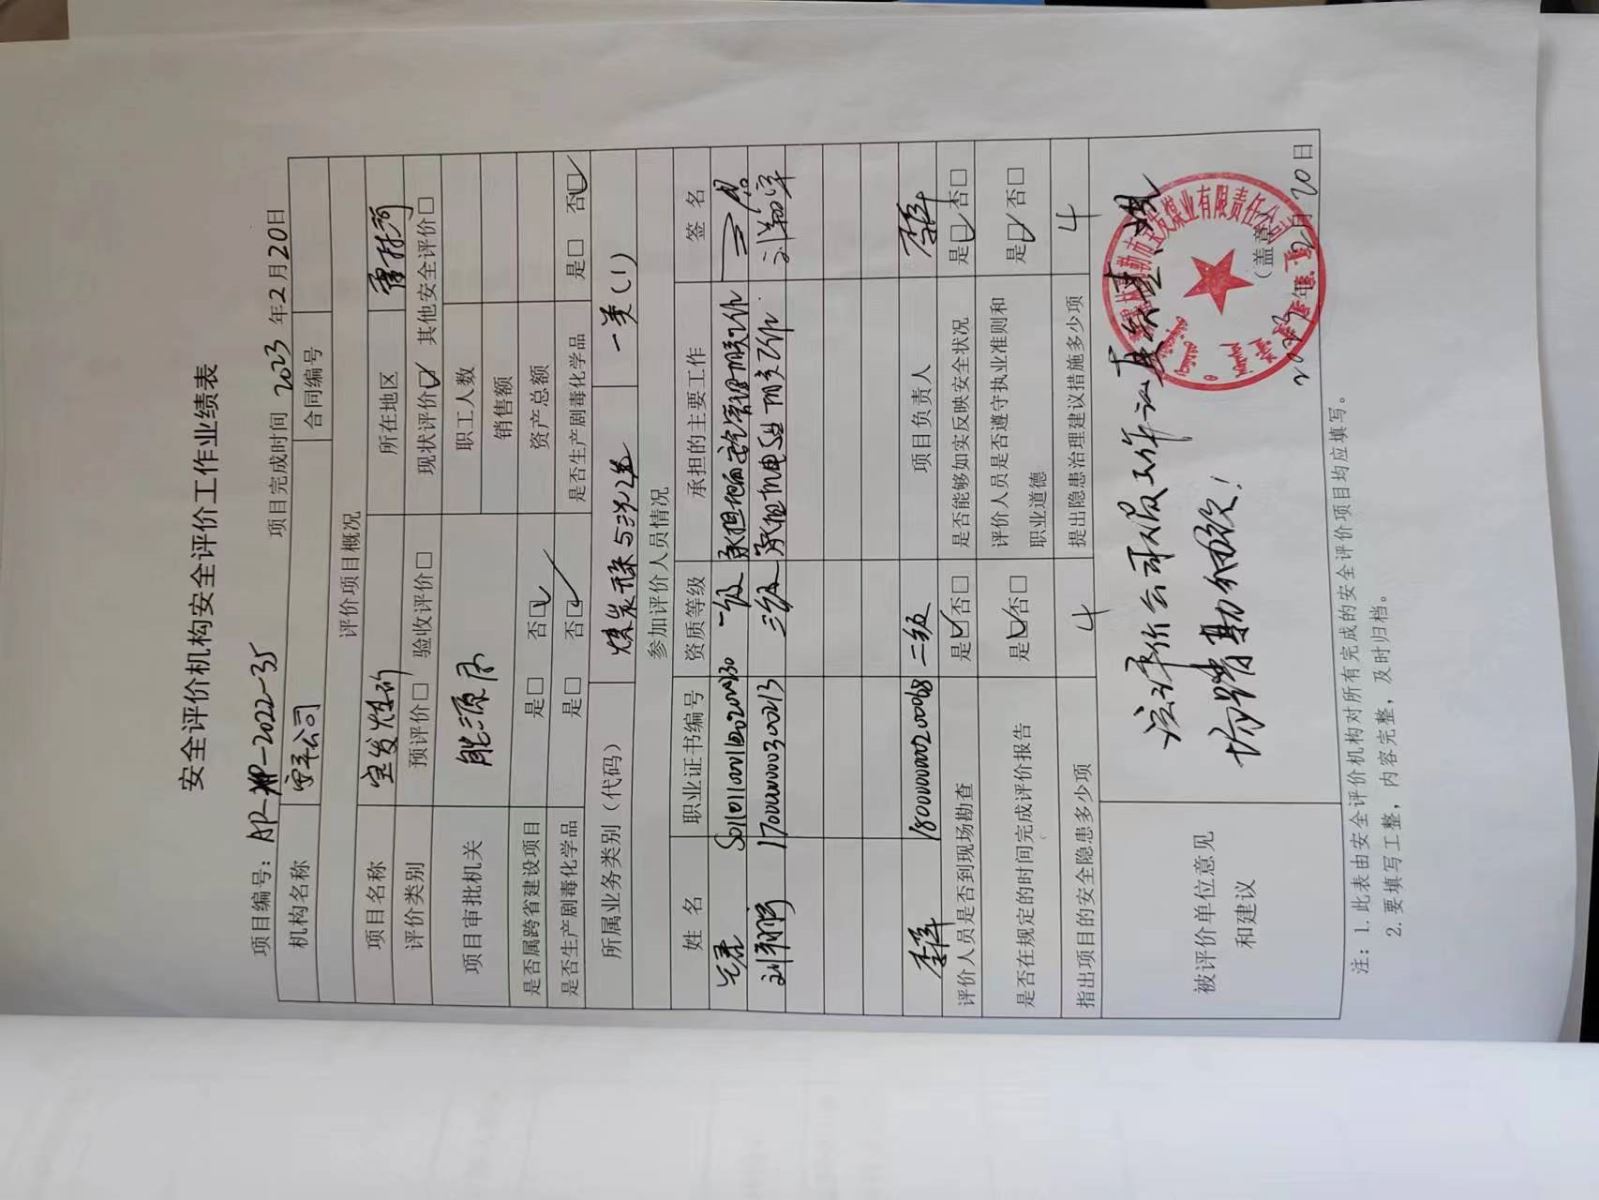 安全评价机构安全评价工作业绩表
项目编号：AP-XP-2022-35 项目完成时间 2023年2月20日
机构名称 合同编号
评价项目概况
项目名称 宝发煤矿 所在地区 霍林河
评价类别 预评价□ 验收评价□ 现状评价☑ 其他安全评价□
项目审批机关 能源局 职工人数
销售额
是否属跨省建设项目 是□ 否☑ 资产总额
是否生产剧毒化学品 是□ 否☑ 是否生产剧毒化学品 是□ 否☑
所属业务类别（代码） 煤炭开采与洗选 一类(1)
参加评价人员情况
姓 名 职业证书编号 资质等级 承担的主要工作 签 名
一级
刘翔宇 1700000000300213 三级 承担机电专业相关工作 刘翔宇
1800000000200068 二级 项目负责人
评价人员是否到现场勘查 是☑否□ 是否能够如实反映安全状况 是☑否□
是否在规定的时间完成评价报告 是☑否□ 评价人员是否遵守执业准则和
职业道德 是☑否□
指出项目的安全隐患多少项 4 提出隐患治理建议措施多少项 4
被评价单位意见
和建议
该评价公司积工作认真负责
踏勘细致！
煤业有限责任公司
（盖章）
2023年2月20日
注：1.此表由安全评价机构对所有完成的安全评价项目均应填写。
2.要填写工整，内容完整，及时归档。